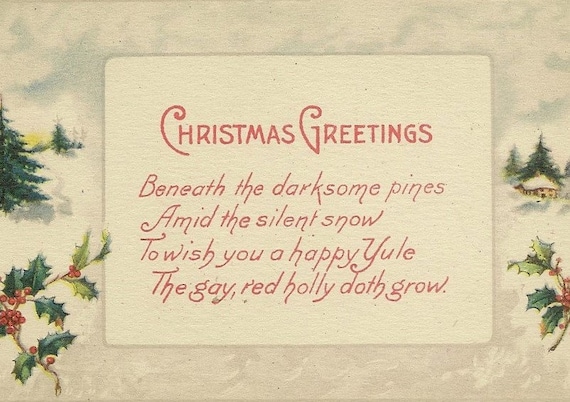 CHRISTMAS GREETINGS
Beneath the darksome pines
Amid the silent snow
To wish you a happy Yule
The gay, red holly doth grow.